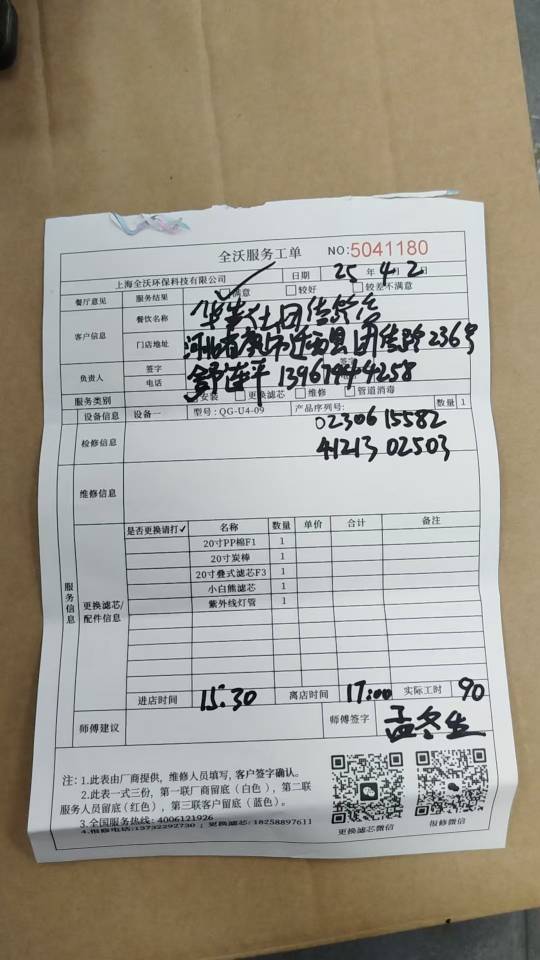 全沃服务工单 NO:5041180
上海全沃环保科技有限公司 日期 25年4月2日
餐厅意见 服务结果 ✓满意 □较好 □较差不满意
客户信息 餐饮名称 华莱士团结路店
门店地址 河北省 县团结路236号
负责人 签字 舒连平
电话 13967944258
服务类别 安装 □更换滤芯 □维修 □管道消毒
设备信息 设备一 型号: QG-U4-09 产品序列号: 数量 1
检修信息 0230615582
4121302503
维修信息
服务信息
更换滤芯/配件信息
是否更换请打✓ 名称 数量 单价 合计 备注
20寸PP棉F1 1
20寸炭棒 1
20寸叠式滤芯F3 1
小白熊滤芯 1
紫外线灯管 1
进店时间 15:30 离店时间 17:00 实际工时 90
师傅建议 师傅签字 孟冬生
注: 1.此表由厂商提供, 维修人员填写, 客户签字确认。
2.此表一式三份, 第一联厂商留底 (白色), 第二联
服务人员留底(红色), 第三联客户留底 (蓝色)。
3.全国服务热线: 4006121926
4.报修电话:13732292730 ; 更换滤芯:18258897611
更换滤芯微信 报修微信